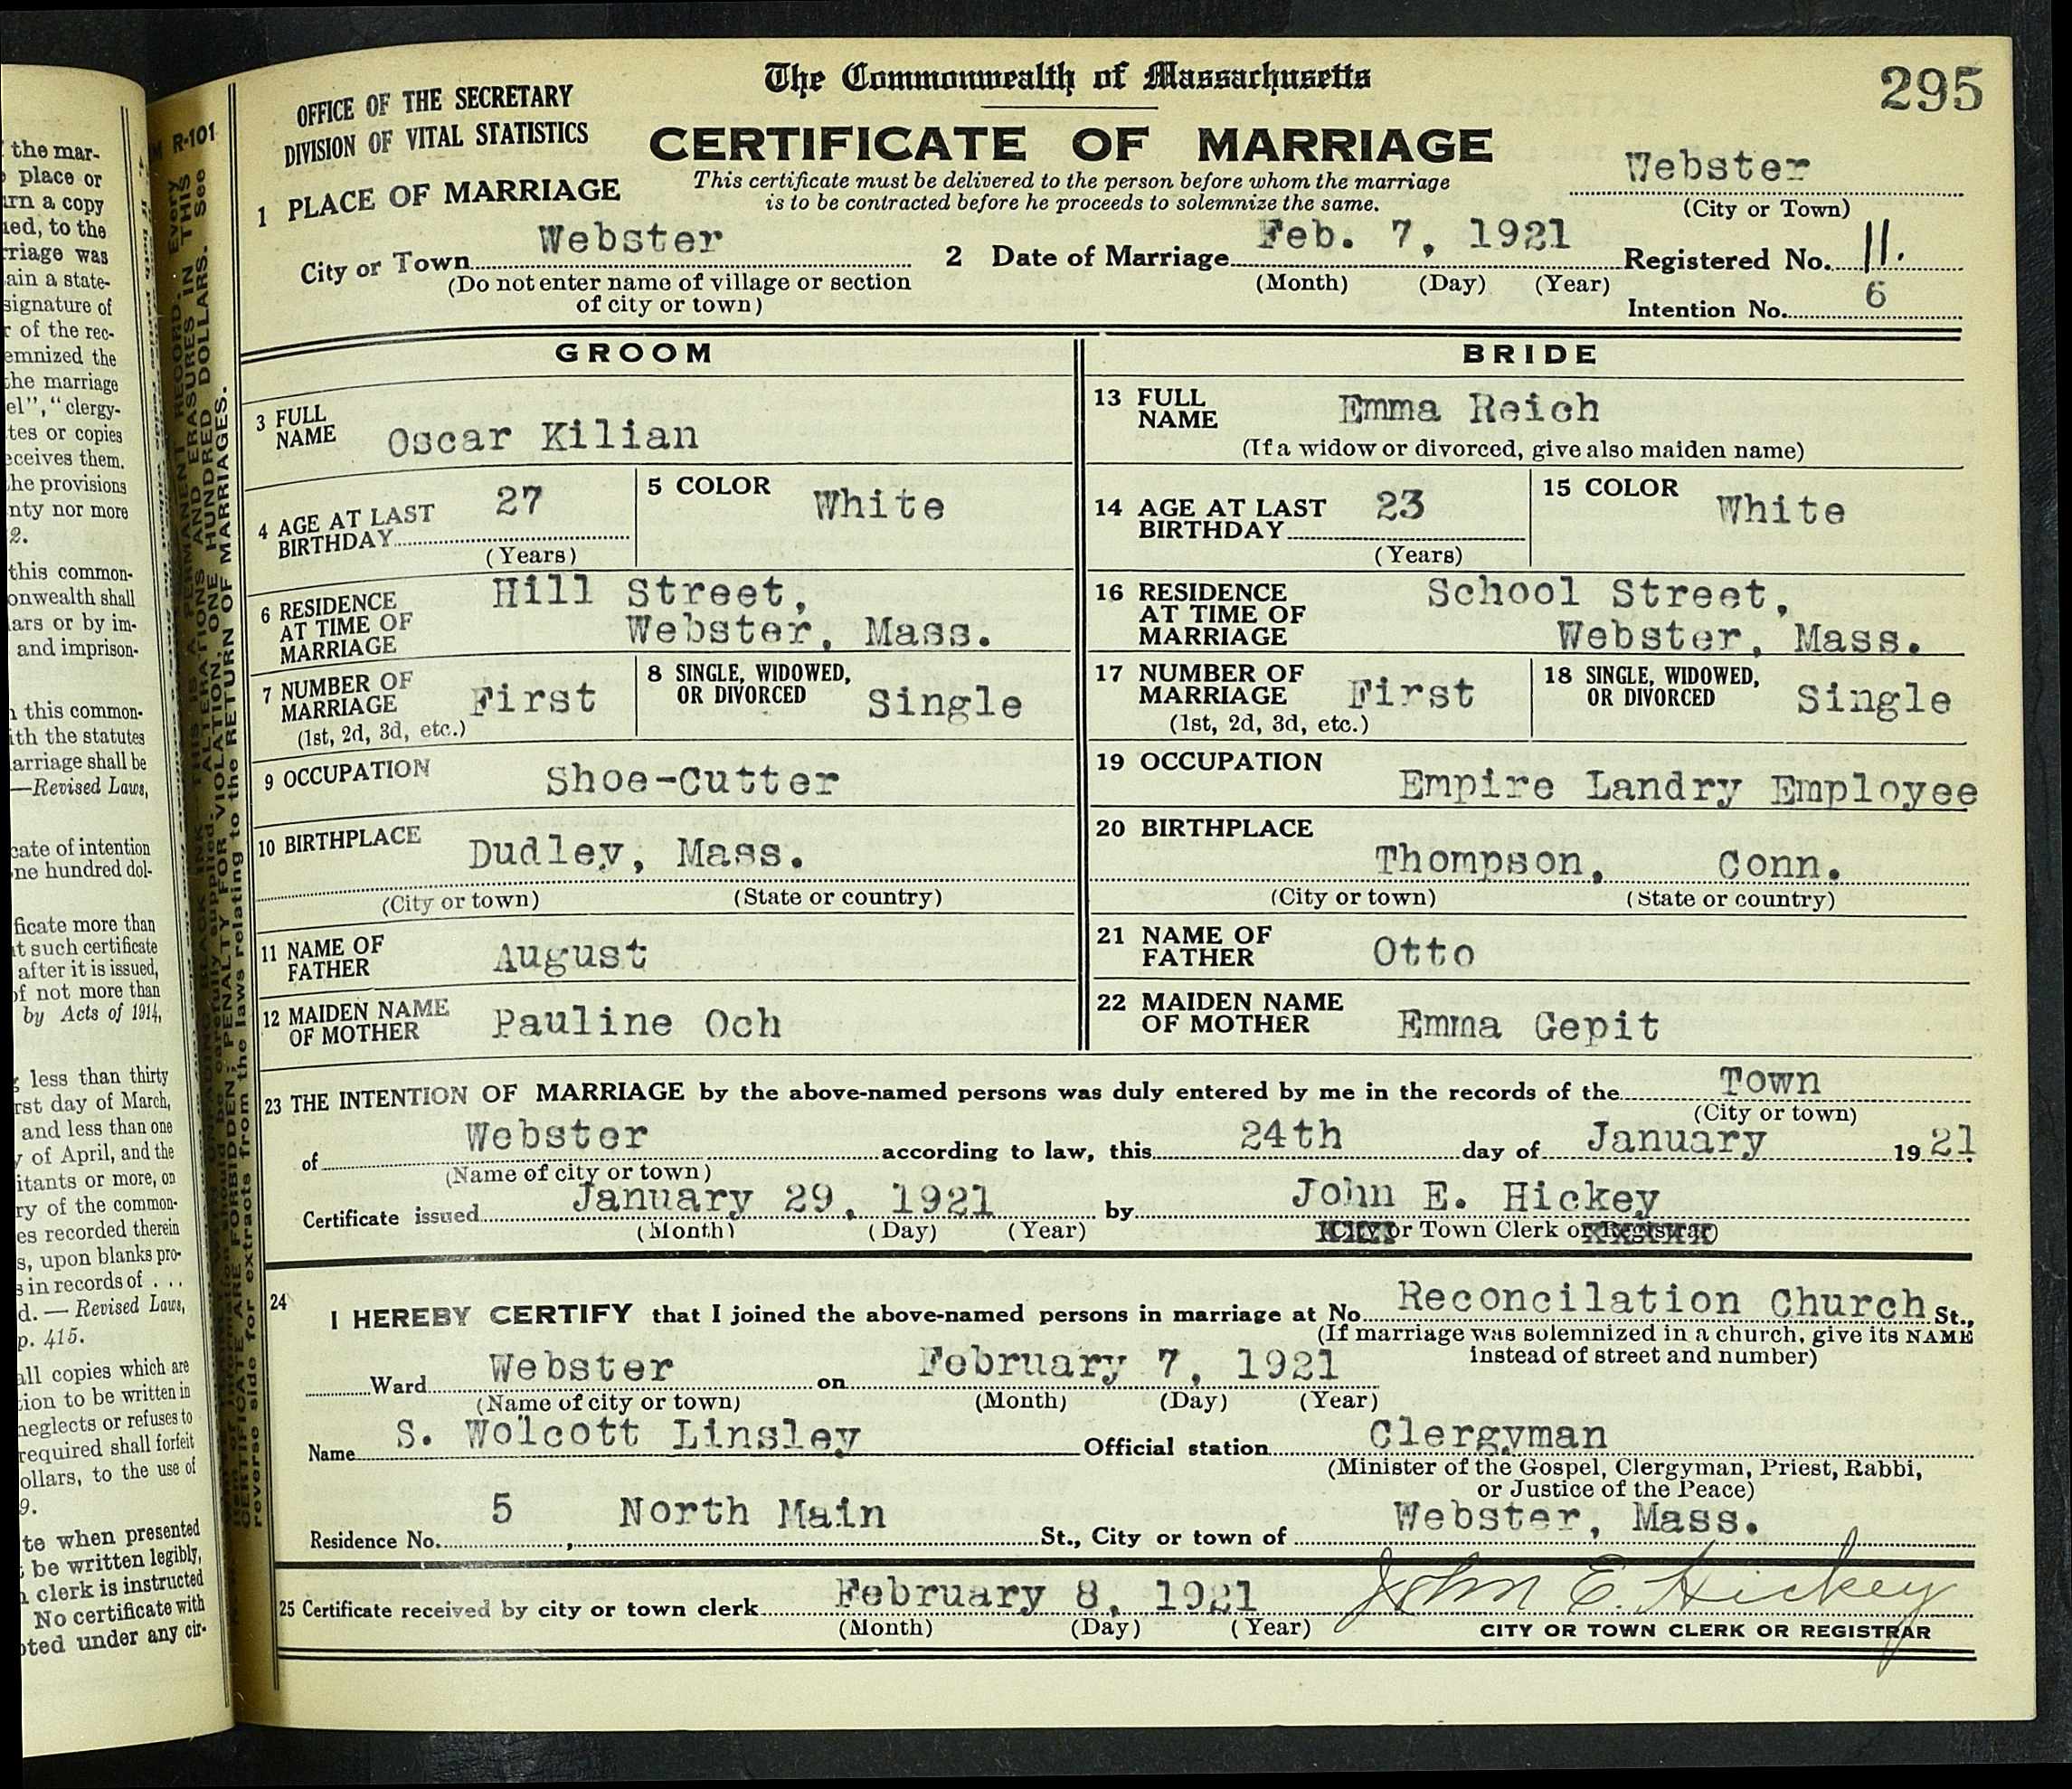 the mar-
place or
urn a copy
ied, to the
rriage was
ain a state-
signature of
r of the rec-
emnized the
the marriage
el", "clergy-
tes or copies
eceives them.
the provisions
nty nor more
2.
this common-
onwealth shall
lars or by im-
and imprison-
this common-
ith the statutes
arriage shall be
—Revised Laws,
cate of intention
ne hundred dol-
ficate more than
t such certificate
after it is issued,
of not more than
by Acts of 1914,
less than thirty
rst day of March,
and less than one
of April, and the
itants or more, on
ry of the common-
es recorded therein
s, upon blanks pro-
s in records of . . .
d. — Revised Laws,
p. 415.
all copies which are
ion to be written in
neglects or refuses to
required shall forfeit
ollars, to the use of
9.
te when presented
be written legibly,
clerk is instructed
No certificate with
pted under any cir-
R-101
reverse side for extracts from the laws relating to the RETURN OF MARRIAGES.
The Commonwealth of Massachusetts
295
OFFICE OF THE SECRETARY
DIVISION OF VITAL STATISTICS
CERTIFICATE OF MARRIAGE
This certificate must be delivered to the person before whom the marriage
is to be contracted before he proceeds to solemnize the same.
Webster
(City or Town)
1 PLACE OF MARRIAGE
City or Town Webster
(Do not enter name of village or section
of city or town)
2 Date of Marriage Feb. 7, 1921
(Month) (Day) (Year)
Registered No. 11.
Intention No. 6
GROOM
3 FULL NAME Oscar Kilian
4 AGE AT LAST BIRTHDAY 27
(Years)
5 COLOR White
6 RESIDENCE AT TIME OF MARRIAGE Hill Street,
Webster, Mass.
7 NUMBER OF MARRIAGE First
(1st, 2d, 3d, etc.)
8 SINGLE, WIDOWED, OR DIVORCED Single
9 OCCUPATION Shoe-Cutter
10 BIRTHPLACE Dudley, Mass.
(City or town) (State or country)
11 NAME OF FATHER August
12 MAIDEN NAME OF MOTHER Pauline Och
BRIDE
13 FULL NAME Emma Reich
(If a widow or divorced, give also maiden name)
14 AGE AT LAST BIRTHDAY 23
(Years)
15 COLOR White
16 RESIDENCE AT TIME OF MARRIAGE School Street,
Webster, Mass.
17 NUMBER OF MARRIAGE First
(1st, 2d, 3d, etc.)
18 SINGLE, WIDOWED, OR DIVORCED Single
19 OCCUPATION Empire Landry Employee
20 BIRTHPLACE Thompson, Conn.
(City or town) (State or country)
21 NAME OF FATHER Otto
22 MAIDEN NAME OF MOTHER Emma Gepit
23 THE INTENTION OF MARRIAGE by the above-named persons was duly entered by me in the records of the Town
(City or town)
of Webster according to law, this 24th day of January 1921
(Name of city or town)
Certificate issued January 29, 1921 by John E. Hickey
(Month) (Day) (Year) (City or Town Clerk or Registrar)
24 I HEREBY CERTIFY that I joined the above-named persons in marriage at No. Reconcilation Church St.,
(If marriage was solemnized in a church, give its NAME
instead of street and number)
Ward Webster on February 7, 1921
(Name of city or town) (Month) (Day) (Year)
Name S. Wolcott Linsley Official station Clergyman
(Minister of the Gospel, Clergyman, Priest, Rabbi,
or Justice of the Peace)
Residence No. 5, North Main St., City or town of Webster, Mass.
25 Certificate received by city or town clerk February 8, 1921 John E. Hickey
(Month) (Day) (Year) CITY OR TOWN CLERK OR REGISTRAR